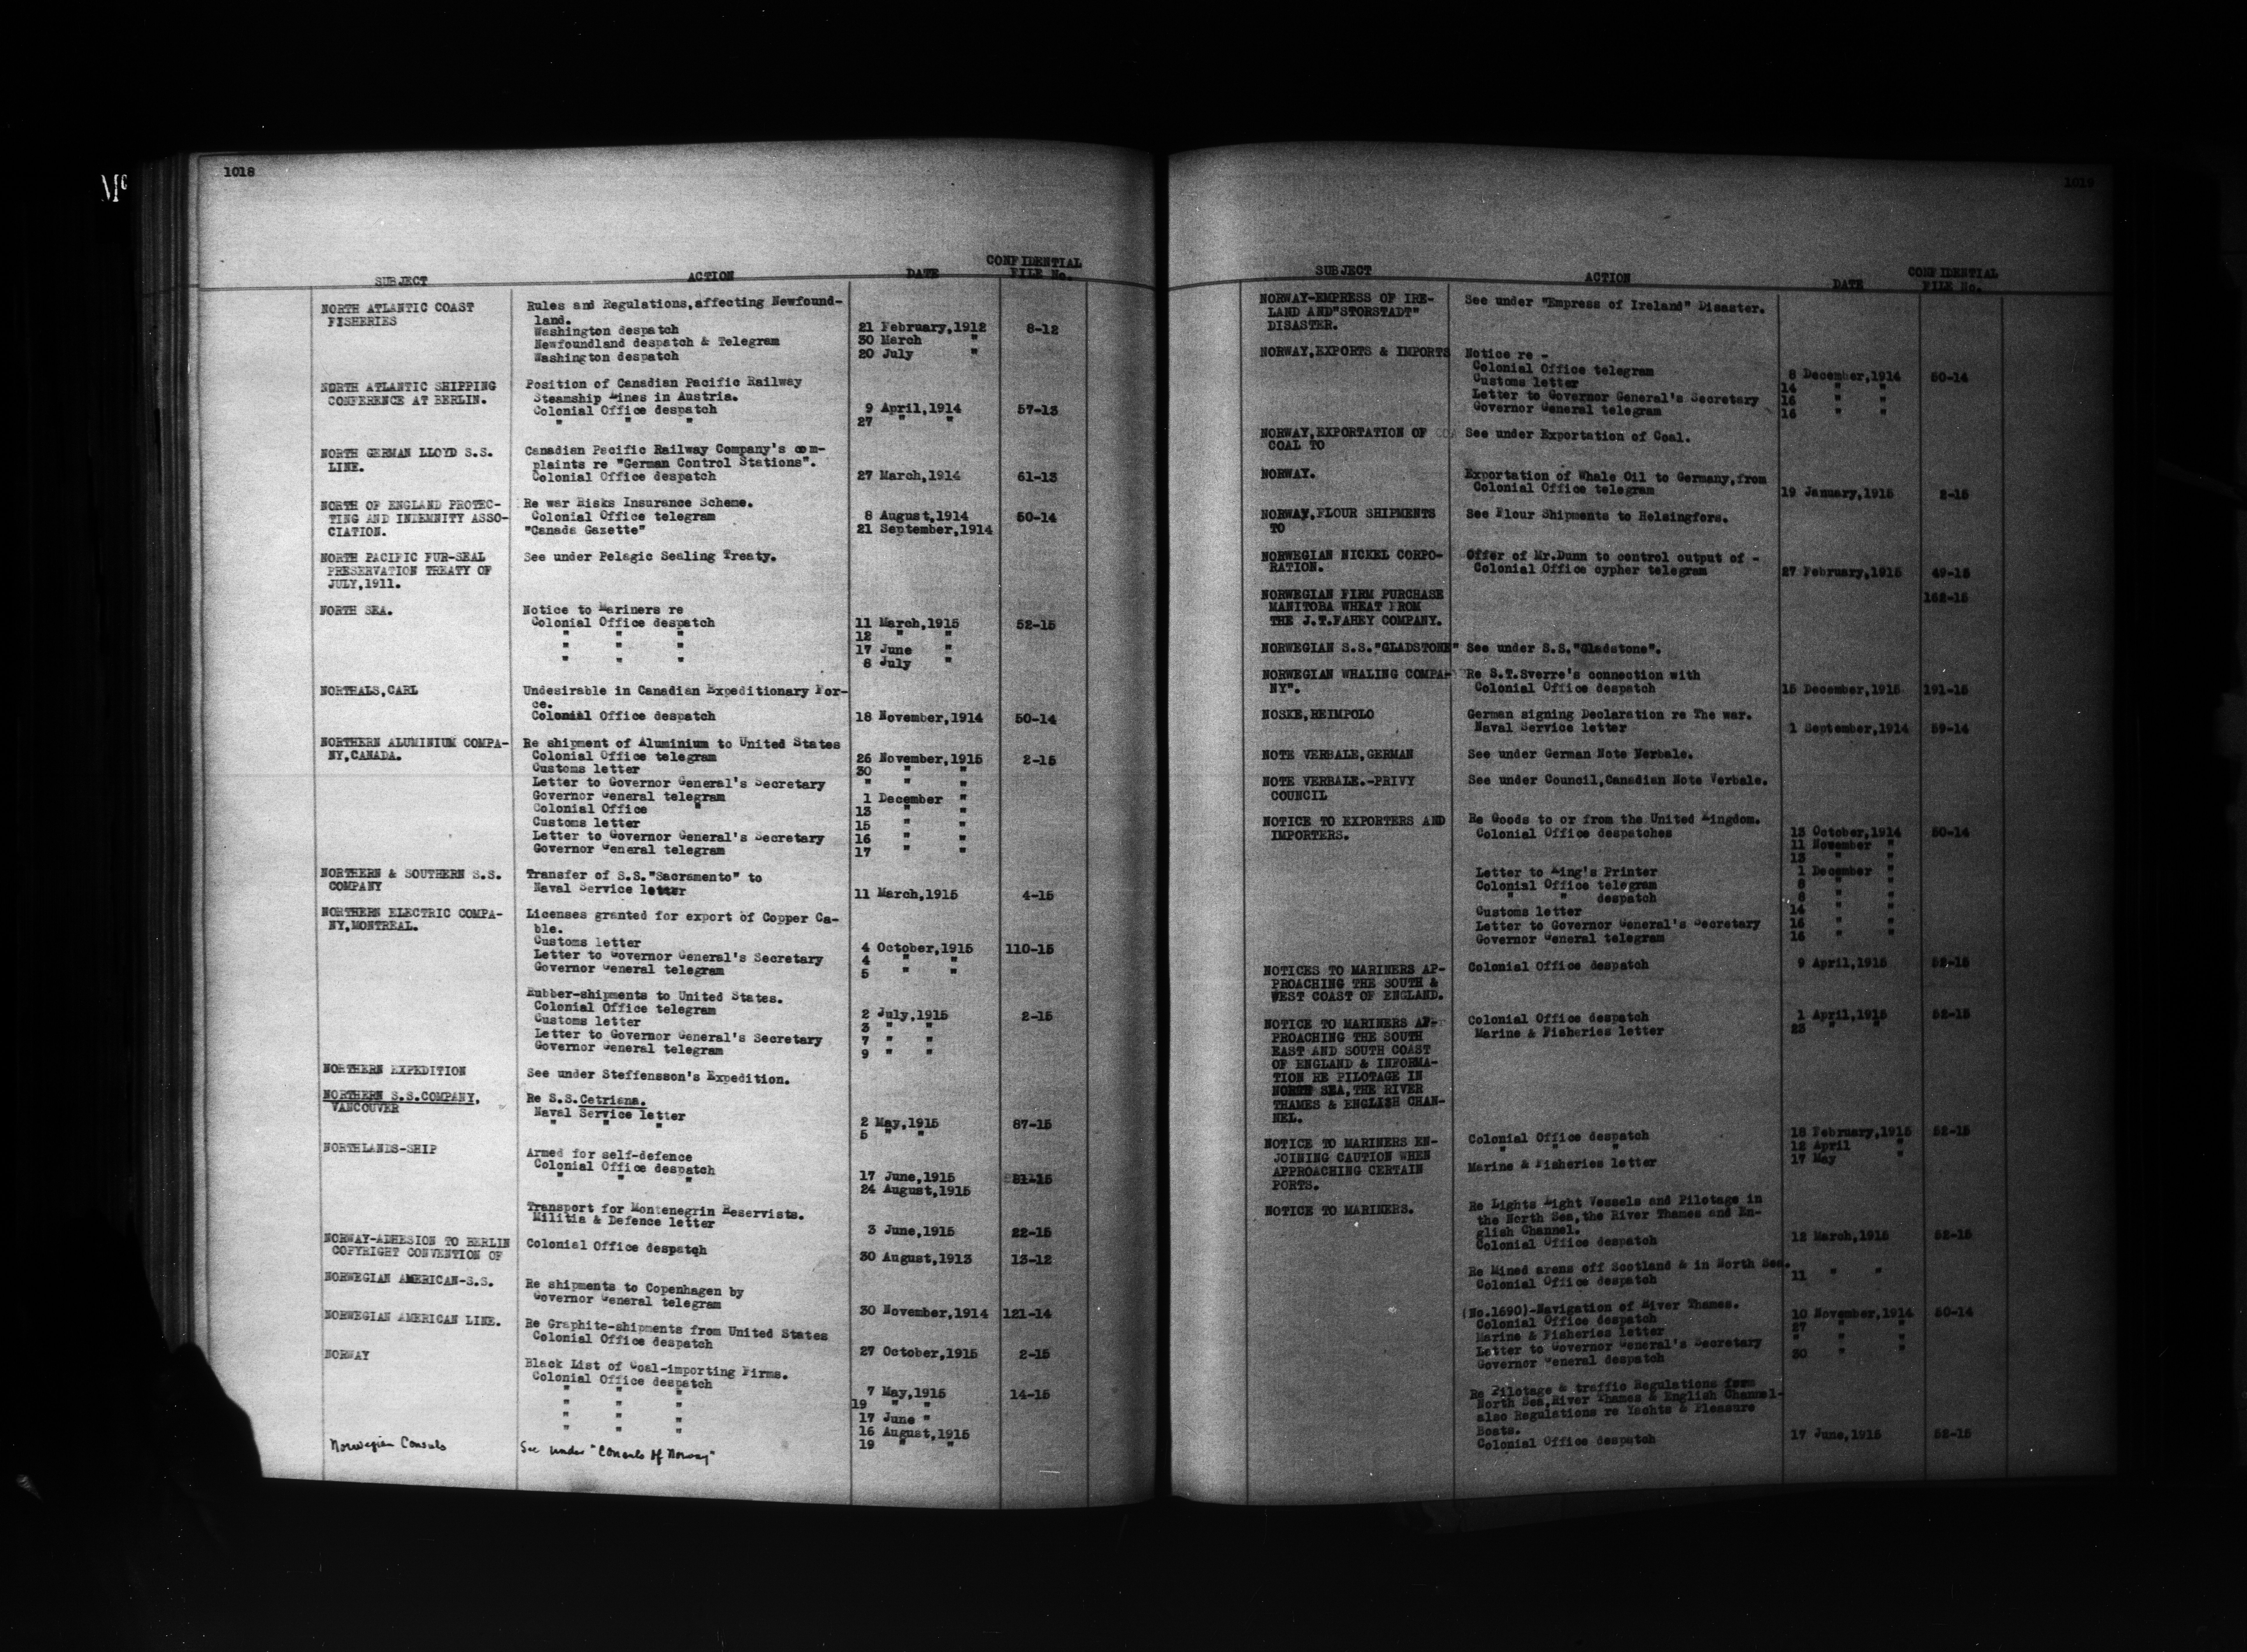 Mc
1018
SUBJECT ACTION DATE CONFIDENTIAL FILE No.
NORTH ATLANTIC COAST Rules and Regulations,affecting Newfound-
FISHERIES land.
Washington despatch 21 February,1912 8-12
Newfoundland despatch & Telegram 30 March "
Washington despatch 20 July "
NORTH ATLANTIC SHIPPING Position of Canadian Pacific Railway
CONFERENCE AT BERLIN. Steamship Lines in Austria.
Colonial Office despatch 9 April,1914 57-13
" " " 27 " "
NORTH GERMAN LLOYD S.S. Canadian Pacific Railway Company's com-
LINE. plaints re "German Control Stations".
Colonial Office despatch 27 March,1914 61-13
NORTH OF ENGLAND PROTEC- Re war Risks Insurance Scheme.
TING AND INDEMNITY ASSO- Colonial Office telegram 8 August,1914 50-14
CIATION. "Canada Gazette" 21 September,1914
NORTH PACIFIC FUR-SEAL See under Pelagic Sealing Treaty.
PRESERVATION TREATY OF
JULY,1911.
NORTH SEA. Notice to Mariners re
Colonial Office despatch 11 March,1915 52-15
" " " 12 " "
" " " 17 June "
" " " 8 July "
NORTHALS,CARL Undesirable in Canadian Expeditionary For-
ce.
Colonial Office despatch 18 November,1914 50-14
NORTHERN ALUMINIUM COMPA- Re shipment of Aluminium to United States
NY,CANADA. Colonial Office telegram 26 November,1915 2-15
Customs letter 30 " "
Letter to Governor General's Secretary " " "
Governor General telegram 1 December "
Colonial Office " 13 " "
Customs letter 15 " "
Letter to Governor General's Secretary 16 " "
Governor General telegram 17 " "
NORTHERN & SOUTHERN S.S. Transfer of S.S."Sacramento" to
COMPANY Naval Service letter 11 March,1915 4-15
NORTHERN ELECTRIC COMPA- Licenses granted for export of Copper Ca-
NY,MONTREAL. ble.
Customs letter 4 October,1915 110-15
Letter to Governor General's Secretary 4 " "
Governor General telegram 5 " "
Rubber-shipments to United States.
Colonial Office telegram 2 July,1915 2-15
Customs letter 3 " "
Letter to Governor General's Secretary 7 " "
Governor General telegram 9 " "
NORTHERN EXPEDITION See under Steffensson's Expedition.
NORTHERN S.S.COMPANY, Re S.S.Cetriana.
VANCOUVER Naval Service letter 2 May,1915 87-15
" " " 5 " "
NORTHLANDS-SHIP Armed for self-defence
Colonial Office despatch 17 June,1915
" " " 24 August,1915
Transport for Montenegrin Reservists.
Militia & Defence letter 3 June,1915 22-15
NORWAY-ADHESION TO BERLIN Colonial Office despatch 30 August,1913 13-12
COPYRIGHT CONVENTION OF
NORWEGIAN AMERICAN-S.S. Re shipments to Copenhagen by
Governor General telegram 30 November,1914 121-14
NORWEGIAN AMERICAN LINE. Re Graphite-shipments from United States
Colonial Office despatch 27 October,1915 2-15
NORWAY Black List of Coal-importing Firms.
Colonial Office despatch 7 May,1915 14-15
" " " 19 " "
" " " 17 June "
" " " 16 August,1915
" " " 19 " "
Norwegian Consuls See under "Consuls of Norway"
1019
SUBJECT ACTION DATE CONFIDENTIAL FILE No.
NORWAY-EMPRESS OF IRE- See under "Empress of Ireland" Disaster.
LAND AND"STORSTADT"
DISASTER.
NORWAY,EXPORTS & IMPORTS Notice re -
Colonial Office telegram 8 December,1914 50-14
Customs letter 14 " "
Letter to Governor General's Secretary 16 " "
Governor General telegram 16 " "
NORWAY,EXPORTATION OF See under Exportation of Coal.
COAL TO
NORWAY. Exportation of Whale Oil to Germany,from
Colonial Office telegram 19 January,1915 2-15
NORWAY,FLOUR SHIPMENTS See Flour Shipments to Helsingfors.
TO
NORWEGIAN NICKEL CORPO- Offer of Mr.Dunn to control output of -
RATION. Colonial Office cypher telegram 27 February,1915 49-15
NORWEGIAN FIRM PURCHASE 162-15
MANITOBA WHEAT FROM
THE J.T.FAHEY COMPANY.
NORWEGIAN S.S."GLADSTONE" See under S.S."Gladstone".
NORWEGIAN WHALING COMPA- Re S.T.Sverre's connection with
NY". Colonial Office despatch 15 December,1915 191-15
NOSKE,REIMPOLO German signing Declaration re The war.
Naval Service letter 1 September,1914 59-14
NOTE VERBALE,GERMAN See under German Note Verbale.
NOTE VERBALE.-PRIVY See under Council,Canadian Note Verbale.
COUNCIL
NOTICE TO EXPORTERS AND Re Goods to or from the United Kingdom.
IMPORTERS. Colonial Office despatches 13 October,1914 50-14
11 November "
13 " "
Letter to King's Printer 1 December "
Colonial Office telegram 8 " "
" " despatch 8 " "
Customs letter 14 " "
Letter to Governor General's Secretary 16 " "
Governor General telegram 16 " "
NOTICES TO MARINERS AP- Colonial Office despatch 9 April,1915 52-15
PROACHING THE SOUTH &
WEST COAST OF ENGLAND.
NOTICE TO MARINERS AP- Colonial Office despatch 1 April,1915 52-15
PROACHING THE SOUTH Marine & Fisheries letter 23 " "
EAST AND SOUTH COAST
OF ENGLAND & INFORMA-
TION RE PILOTAGE IN
NORTH SEA,THE RIVER
THAMES & ENGLISH CHAN-
NEL.
NOTICE TO MARINERS EN- Colonial Office despatch 18 February,1915 52-15
JOINING CAUTION WHEN " " " 12 April "
APPROACHING CERTAIN Marine & Fisheries letter 17 May "
PORTS.
NOTICE TO MARINERS. Re Lights Light Vessels and Pilotage in
the North Sea,the River Thames and En-
glish Channel.
Colonial Office despatch 12 March,1915 52-15
Re Mined areas off Scotland & in North Sea.
Colonial Office despatch 11 " "
(No.1690)-Navigation of River Thames.
Colonial Office despatch 10 November,1914 50-14
Marine & Fisheries letter 27 " "
Letter to Governor General's Secretary " " "
Governor General despatch 30 " "
Re Pilotage & traffic Regulations form
North Sea,River Thames & English Channel-
also Regulations re Yachts & Pleasure
Boats.
Colonial Office despatch 17 June,1915 52-15